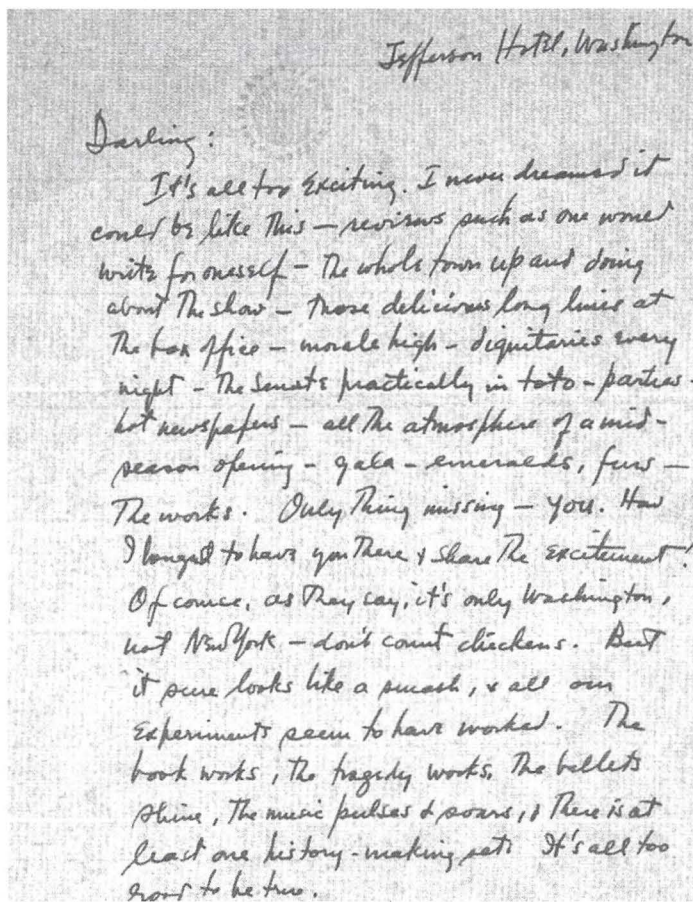 Jefferson Hotel, Washington
Darling:
It's all too exciting. I never dreamed it
could be like this — reviews such as one would
write for oneself — the whole town up and doing
about the show — those delicious long lines at
the box office — morale high — dignitaries every
night — the Senate practically in toto — parties —
hot newspapers — all the atmosphere of a mid-
season opening — gala — emeralds, furs —
the works. Only thing missing — you. How
I longed to have you there & share the excitement!
Of course, as they say, it's only Washington,
not New York — don't count chickens. But
it sure looks like a smash, & all our
experiments seem to have worked. The
book works, the tragedy works, the ballets
shine, the music pulses & soars, & there is at
least one history-making set. It's all too
good to be true.